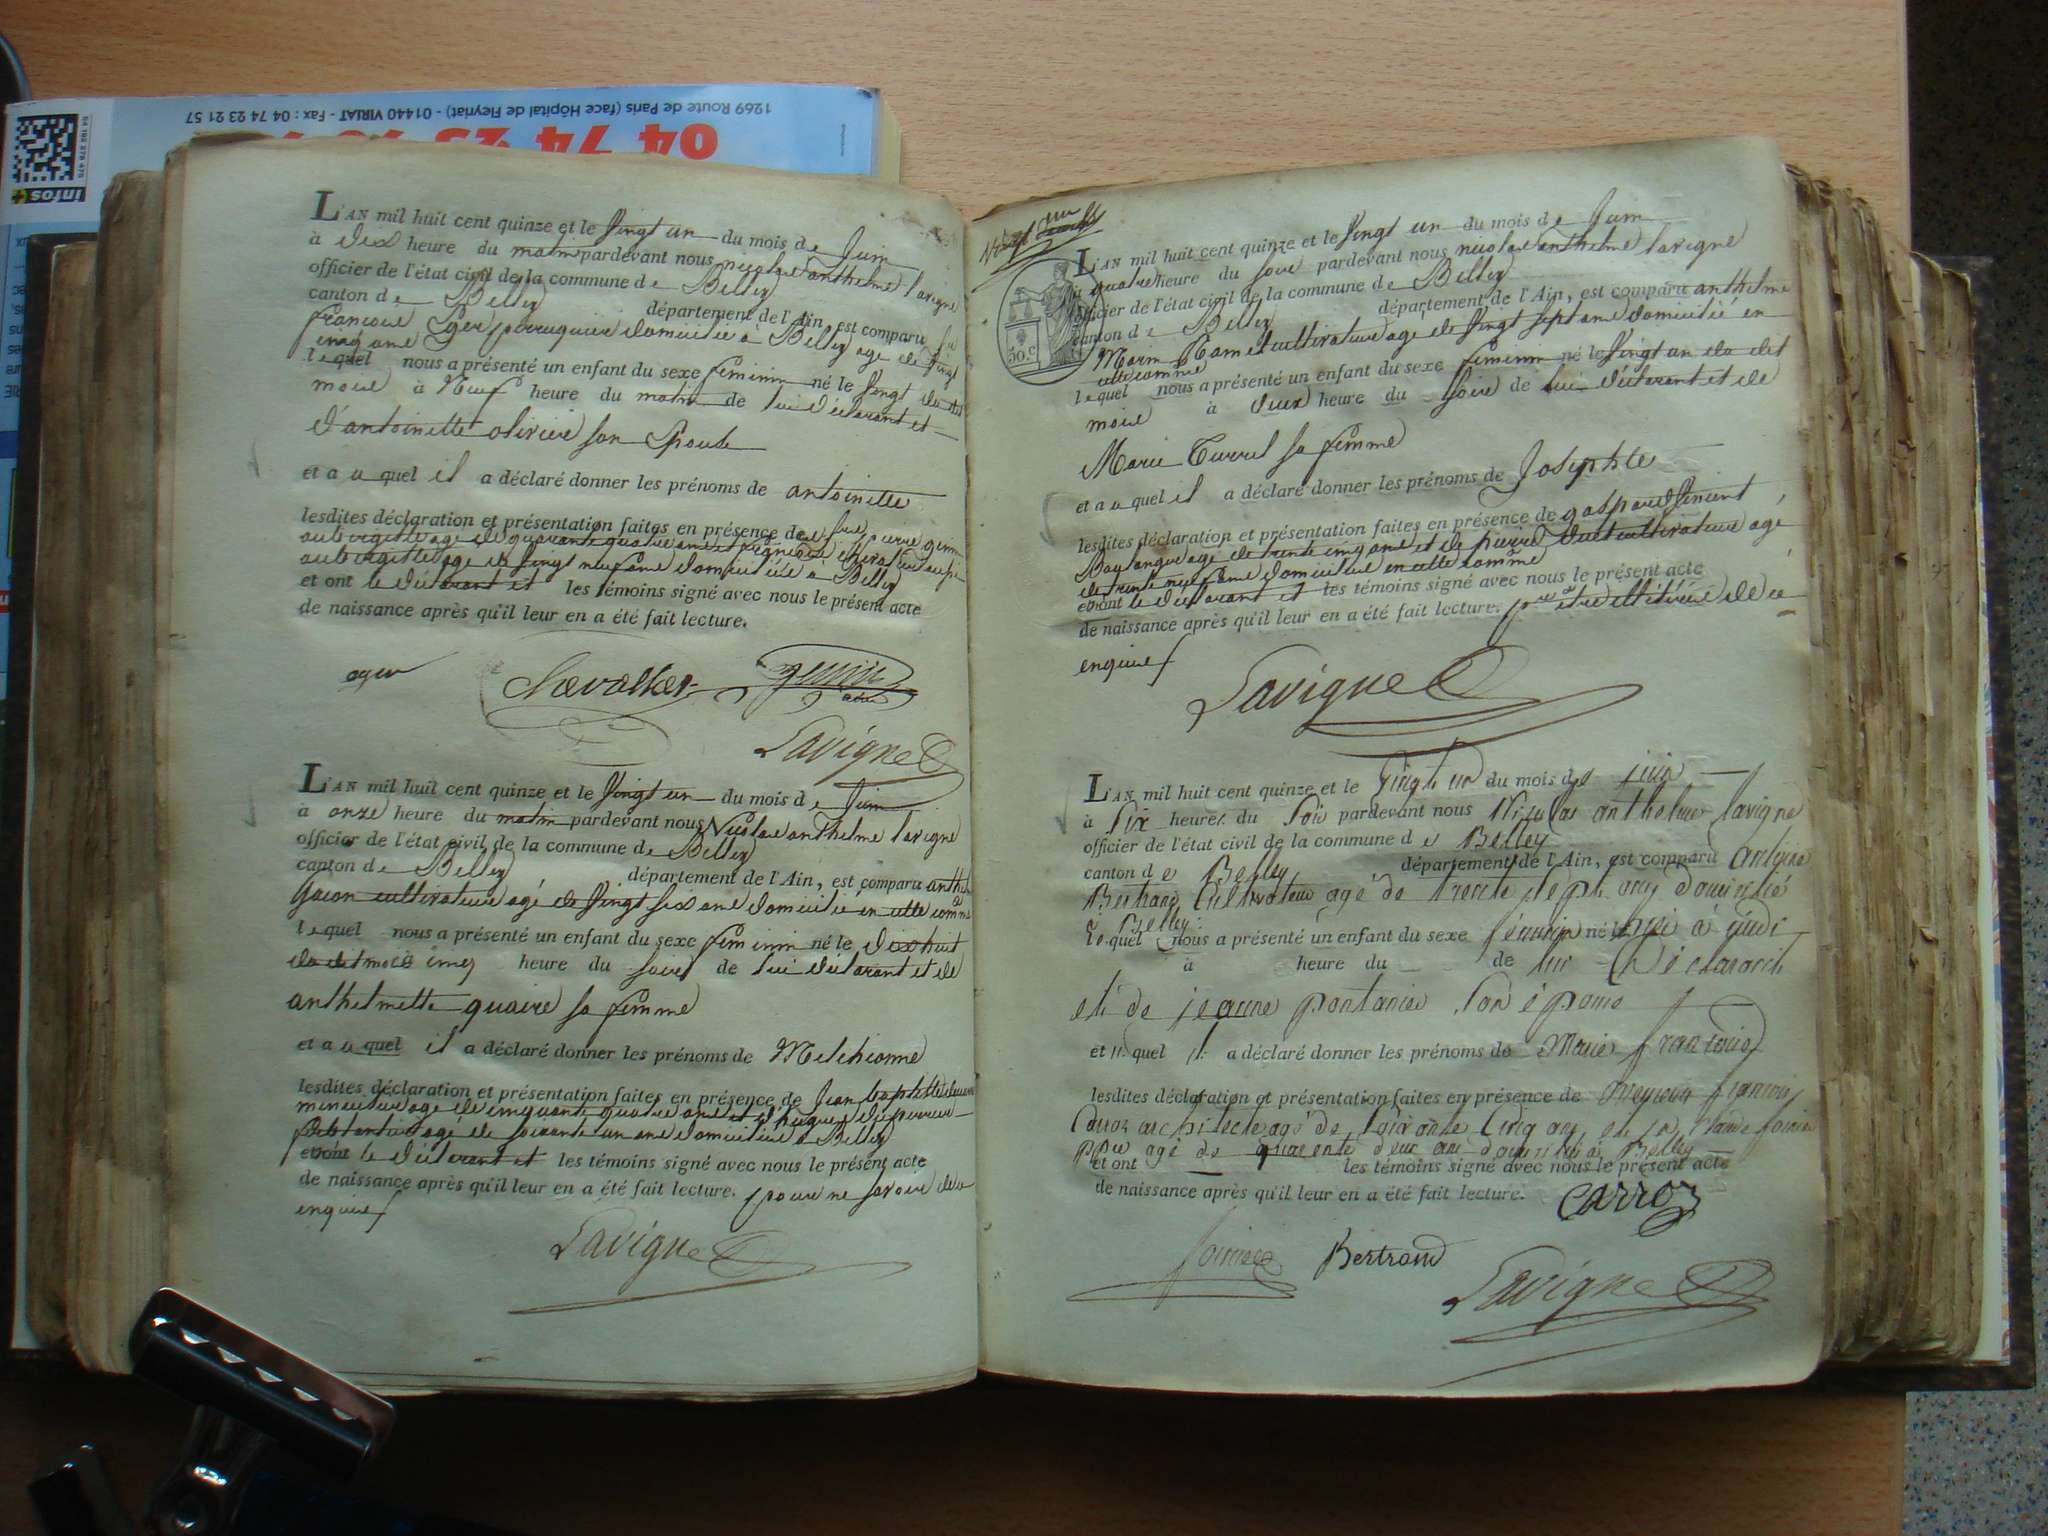 1269 Route de Paris (face Hôpital de Fleyriat) - 01440 VIRIAT - Fax : 04 74 23 21 57
04 74 23
infos
L'AN mil huit cent quinze et le vingt un du mois de Juin
à dix heure du matin pardevant nous nicolas anthelme lavigne
officier de l'état civil de la commune de Belley
canton de Belley département de l'Ain, est comparu
francois perruquier domicilié à Belley agé de vingt
cinq ans
lequel nous a présenté un enfant du sexe feminin né le vingt du dit
mois à Neuf heure du matin de lui déclarant et
d'antoinette olivier son Epouse
et au quel il a déclaré donner les prénoms de antoinette
lesdites déclaration et présentation faites en présence de pierre genin
aubergiste agé de quarante quatre ans et
aubergiste agé de vingt neuf ans domiciliés à Belley
et ont le déclarant et les témoins signé avec nous le présent acte
de naissance après qu'il leur en a été fait lecture.
oger Chevallier genin
Lavigne
L'AN mil huit cent quinze et le vingt un du mois de Juin
à onze heure du matin pardevant nous Nicolas anthelme lavigne
officier de l'état civil de la commune de Belley
canton de Belley département de l'Ain, est comparu anthelme
cultivateur agé de vingt six ans domicilié en cette comme
lequel nous a présenté un enfant du sexe feminin né le dix huit
du dit mois cinq heure du soire de lui déclarant et de
anthelmette quaire sa femme
et au quel il a déclaré donner les prénoms de Melchionne
lesdites déclaration et présentation faites en présence de Jean baptiste
agé de cinquante quatre ans et d'hugues
agé de soixante un ans domiciliés à Belley
et ont le déclarant et les témoins signé avec nous le présent acte
de naissance après qu'il leur en a été fait lecture. pour ne savoir de ce
enquis
Lavigne
30.c
L'AN mil huit cent quinze et le vingt un du mois de Juin
à quatre heure du soire pardevant nous nicolas anthelme lavigne
officier de l'état civil de la commune de Belley
canton de Belley département de l'Ain, est comparu anthelme
Marin Ramel cultivateur agé de vingt sept ans domicilié en
cette comme
lequel nous a présenté un enfant du sexe feminin né le vingt un du dit
mois à deux heure du soire de lui déclarant et de
Marie Turrel sa femme
et au quel il a déclaré donner les prénoms de Josephte
lesdites déclaration et présentation faites en présence de gaspard Vincent
Boulanger agé de trente cinq ans et de pierre cultivateur agé
de trente neuf ans domiciliés en cette comme
et ont le déclarant et les témoins signé avec nous le présent acte
de naissance après qu'il leur en a été fait lecture. de ce
enquis
Lavigne
L'AN mil huit cent quinze et le vingt un du mois de juin
à six heures du soir pardevant nous Nicolas anthelme lavigne
officier de l'état civil de la commune de Belley
canton de Belley département de l'Ain, est comparu antoine
Bertrand Cultivateur agé de trente sept ans domicilié
à Belley
lequel nous a présenté un enfant du sexe féminin né le à midi
à heure du de lui Déclarant
et de jeanne pontanier son épouse
et au quel il a déclaré donner les prénoms de Marie francoise
lesdites déclaration et présentation faites en présence de francois
Carroz architecte agé de soixante cinq ans et de Claude
agé de quarente deux ans domiciliés à Belley
et ont les témoins signé avec nous le présent acte
de naissance après qu'il leur en a été fait lecture. Carroz
Bertrand Lavigne